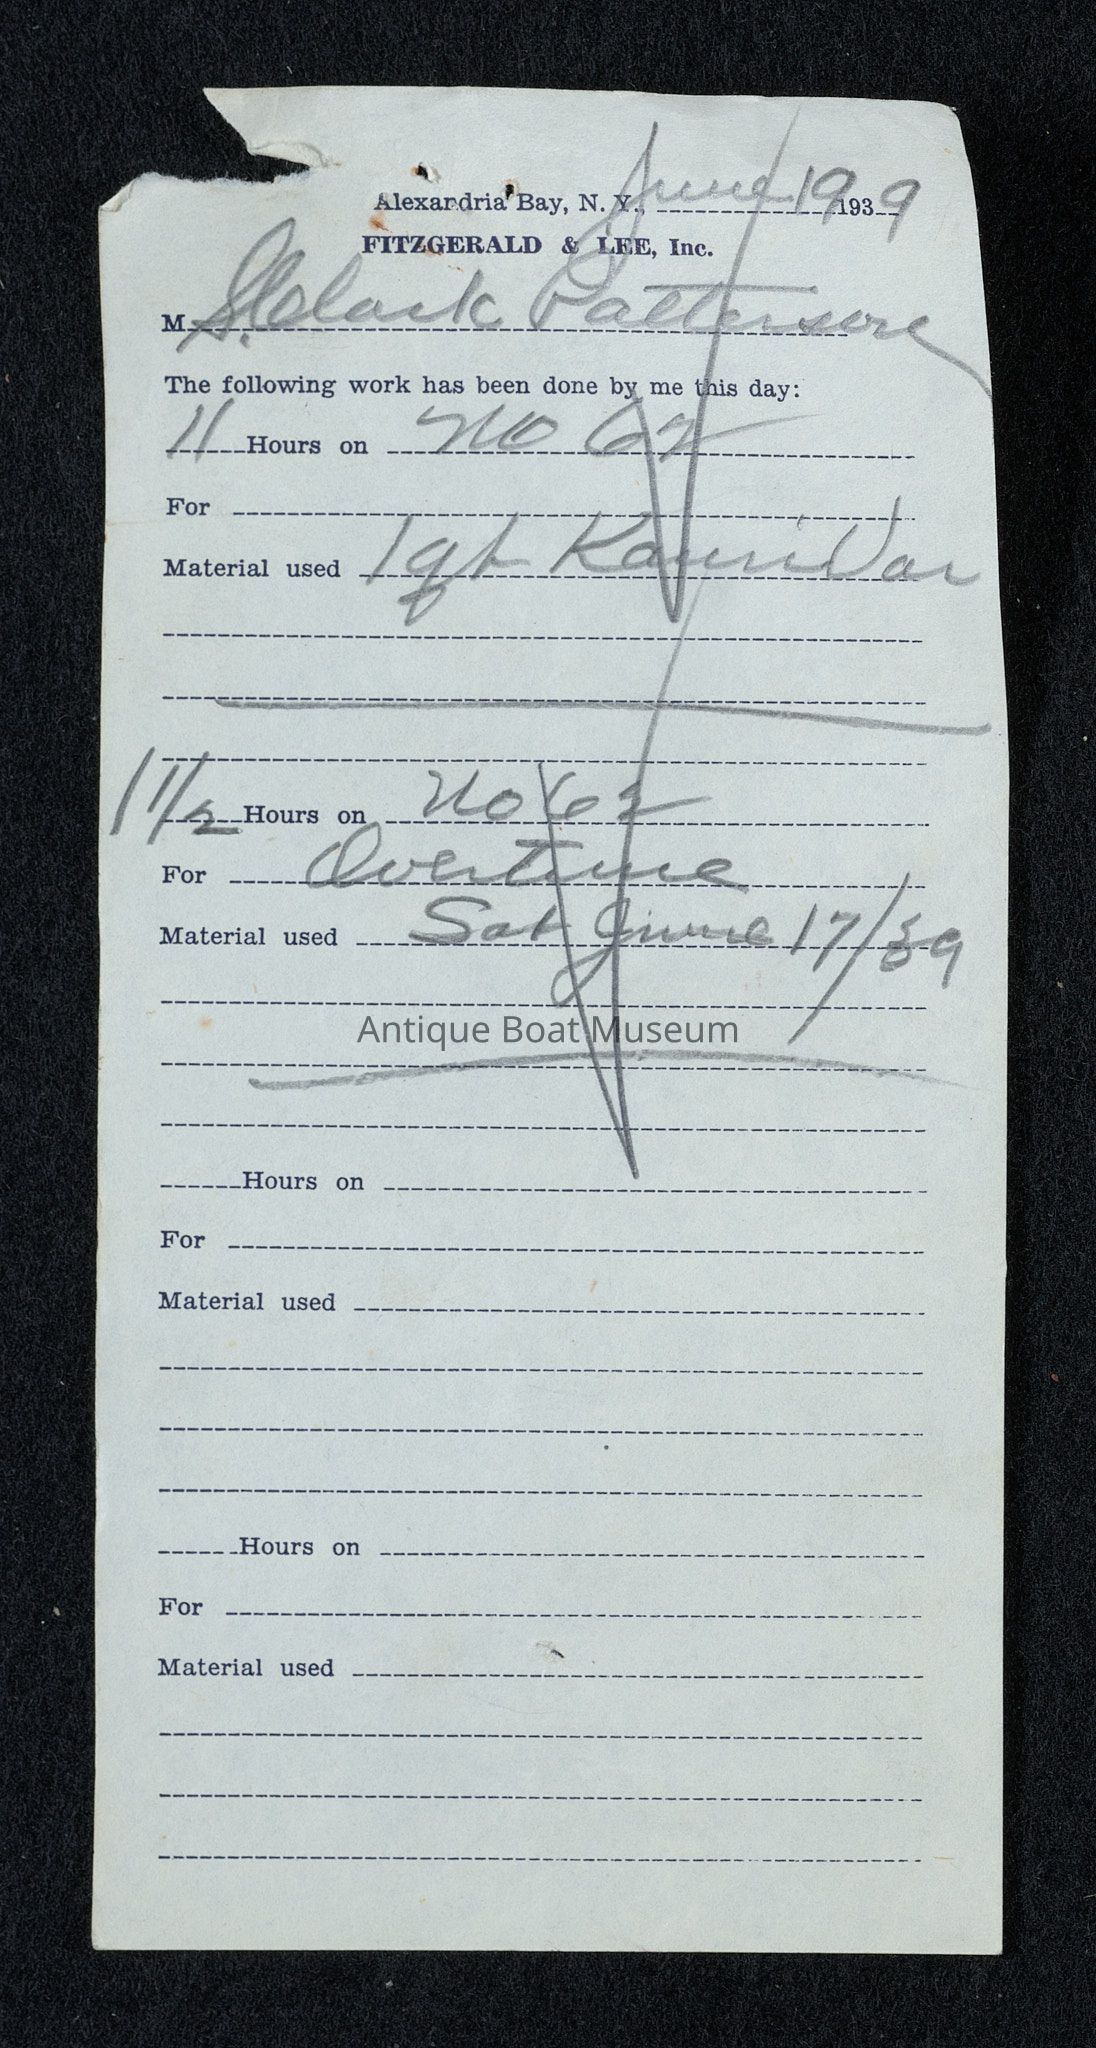 Alexandria Bay, N. Y., June 19 1939
FITZGERALD & LEE, Inc.
M S. Clark Patterson
The following work has been done by me this day:
11 Hours on No 62
For
Material used 1 qt Kauri Var
11/2 Hours on No 62
For Overtime
Material used Sat June 17/39
Antique Boat Museum
Hours on
For
Material used
Hours on
For
Material used